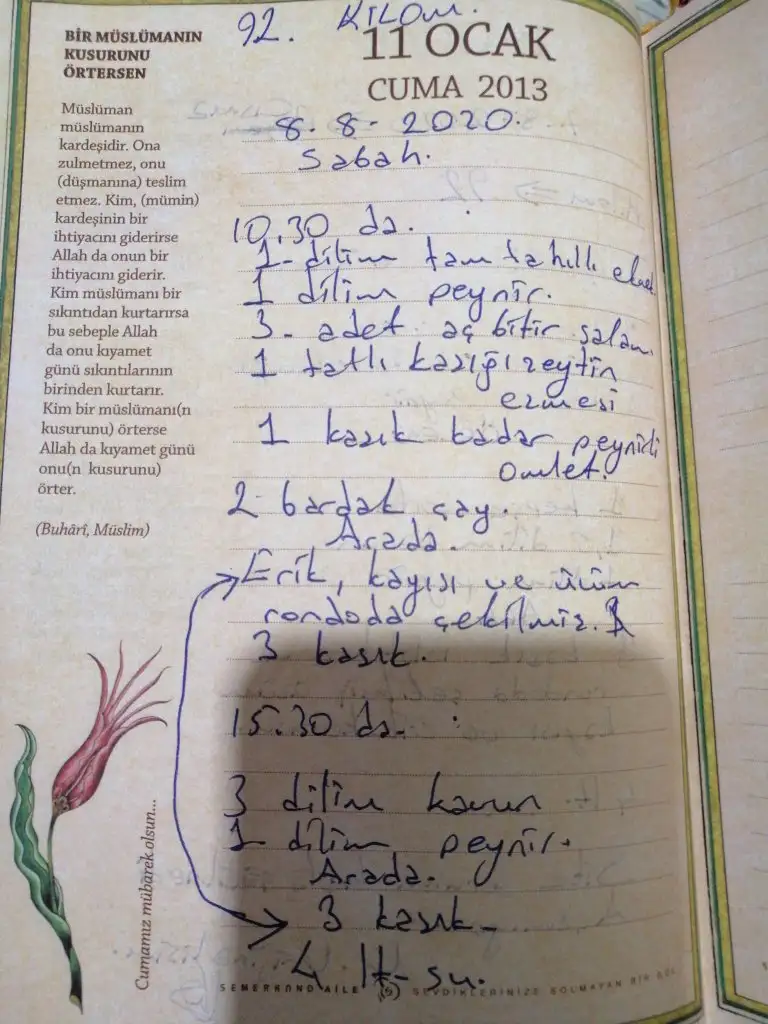 92. KİLOM.
11 OCAK
CUMA 2013
BİR MÜSLÜMANIN
KUSURUNU
ÖRTERSEN
Müslüman
müslümanın
kardeşidir. Ona
zulmetmez, onu
(düşmanına) teslim
etmez. Kim, (mümin)
kardeşinin bir
ihtiyacını giderirse
Allah da onun bir
ihtiyacını giderir.
Kim müslümanı bir
sıkıntıdan kurtarırsa
bu sebeple Allah
da onu kıyamet
günü sıkıntılarının
birinden kurtarır.
Kim bir müslümanı(n
kusurunu) örterse
Allah da kıyamet günü
onu(n kusurunu)
örter.
(Buhârî, Müslim)
Cumamız mübarek olsun...
8.8-2020.
Sabah.
10.30 da.
1-dilim tam tahıllı ekmek
1 dilim peynir.
3-adet aç bitir salam
1 tatlı kaşığı zeytin
ezmesi
1 kaşık kadar peynirli
omlet.
2 bardak çay.
Arada.
Erik, kayısı ve üzüm
rondoda çekilmiz.
3 kaşık.
15.30 da.
3 dilim kavun
1 dilim peynir.
Arada.
3 kaşık-
4 lt-su.
SEMERKAND AİLE
SEVDİKLERİNİZE SOLMAYAN BİR GÜL